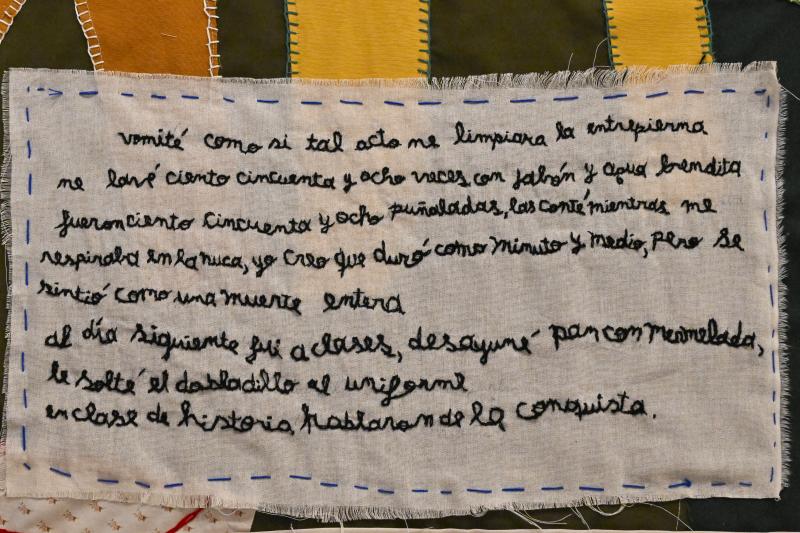 vomité como si tal acto me limpiara la entrepierna
me lavé ciento cincuenta y ocho veces con jabón y agua bendita
fueron ciento cincuenta y ocho puñaladas, las conté mientras me
respiraba en la nuca, yo creo que duró como minuto y medio, pero se
sintió como una muerte entera
al día siguiente fui a clases, desayuné pan con mermelada,
le solté el dobladillo al uniforme
en clase de historia, hablaron de la conquista.